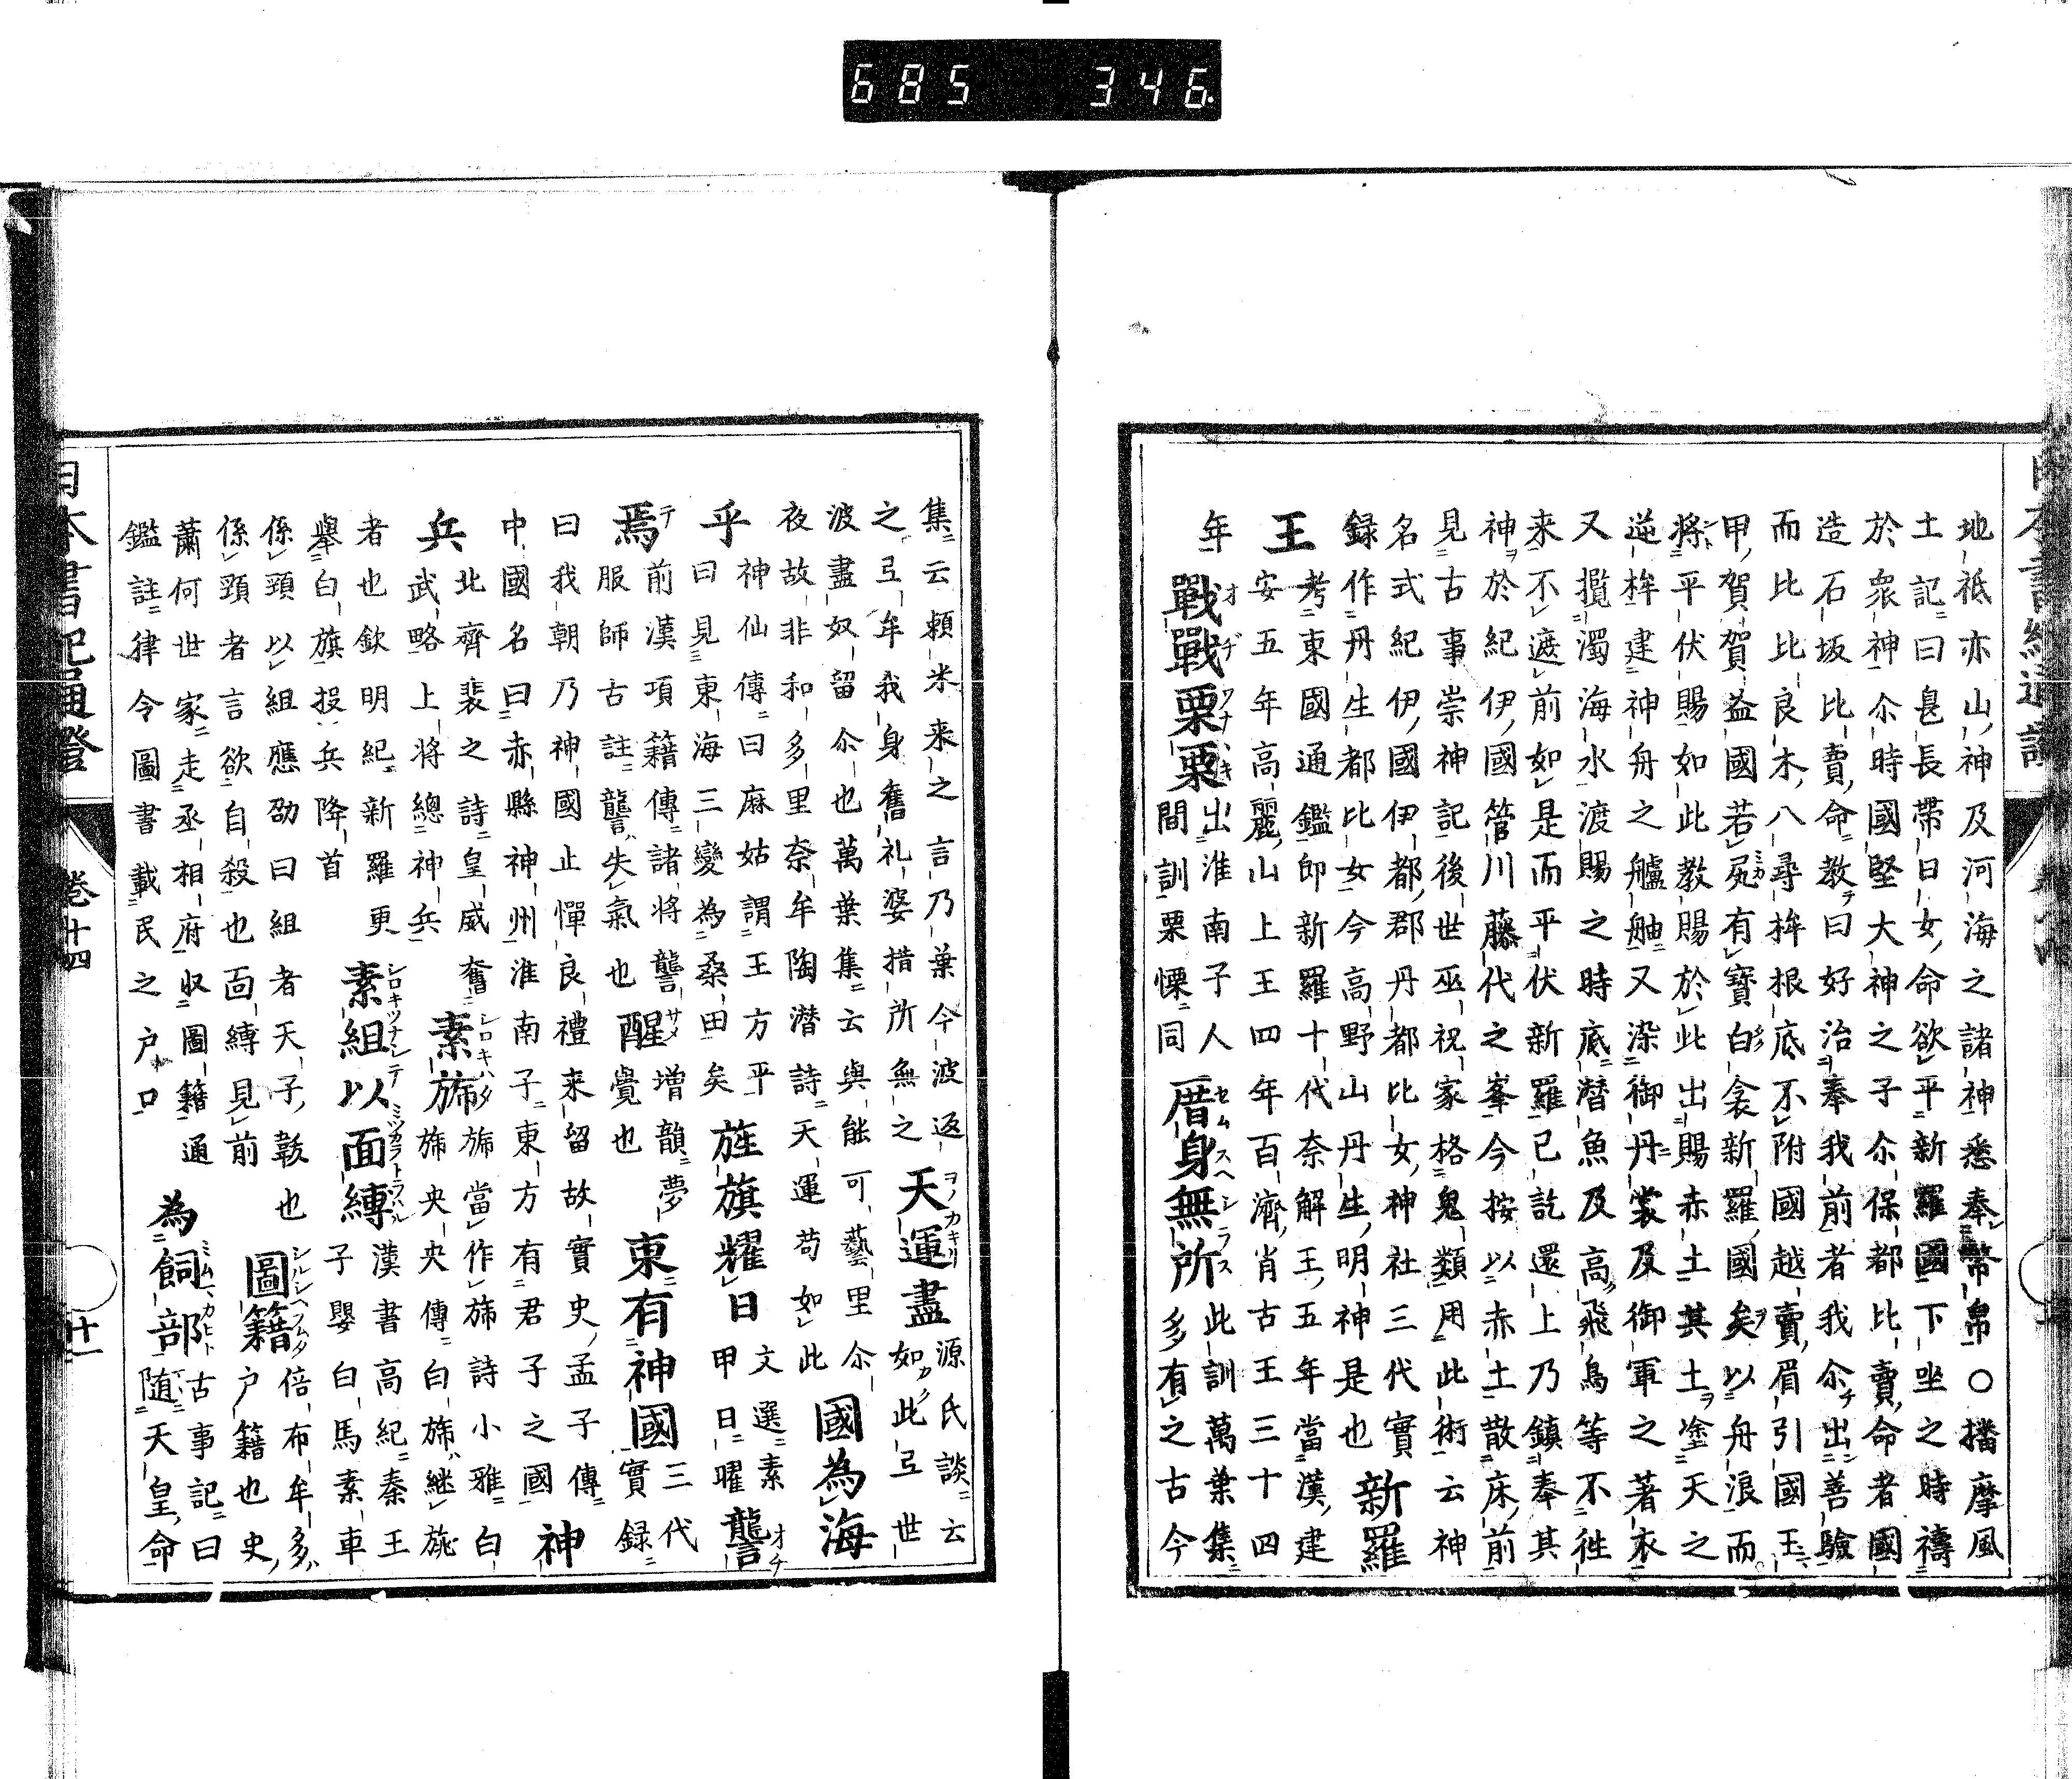 685 346
地祇亦山神及河海之諸神悉奉幣帛〇播摩風
土記曰息長帶日女命欲平新羅國下坐之時禱
於衆神尒時國堅大神之子尒保都比賣命著國
造石坂比賣命教曰好治奉我前者我尒出善驗
而比比良木八尋桙根底不附國越賣眉引國玉
甲賀賀益國若尻有寶白衾新羅國矣以舟浪而
將平伏賜如此教賜於此出賜赤土其土塗天之
逆桙建神舟之艫舳又染御丹裳及御軍之著衣
又攪濁海水渡賜之時底潜魚及高飛鳥等不徃
来不遮前如是而平伏新羅已訖還上乃鎮奉其
神於紀伊國管川藤代之峯今按以赤土散床前
見古事崇神記後世巫祝家格鬼類用此術云神
名式紀伊國伊都郡丹都比女神社三代實
録作丹生都比女今高野山丹生明神是也
新羅
王
考東國通鑑即新羅十代奈解王五年當漢建
安五年高麗山上王四年百濟肖古王三十四
年
戰戰栗栗
オヂワナヽキ
出淮南子人
間訓栗慄同
厝身無所
セムスヘシラス
此訓萬葉集
多有之古今
集云頼米来之言乃葉今波返
之弖牟我身舊礼婆措所無之
天運盡
ヲノカキリ
源氏談云
如此弖世
波盡奴留尒也萬葉集云與能可藝里尒
夜故非和多里奈牟陶潜詩天運苟如此
國為海
乎
神仙傳曰麻姑謂王方平
曰見東海三變為桑田矣
旌旗耀日
文選素
甲日曜
讋
オチ
焉
テ
前漢項籍傳諸将讋
服師古註讋失氣也
醒
サメ
増韻夢
覺也
東有神國
三代
實録
曰我朝乃神國止憚良禮来留故實史孟子傳
中國名曰赤縣神州淮南子東方有君子之國
神
兵
北齊裴之詩皇威奮
武略上将總神兵
素旆
シロキハタ
旆當作旆詩小雅白
旆央央傳白旆継旐
者也欽明紀新羅更
舉白旗投兵降首
素組以面縛
シロキツナシテミツカラトラハル
漢書高紀秦王
子嬰白馬素車
係頸以組應劭曰組者天子韍也
係頸者言欲自殺也面縛見前
圖籍
シルシヘフムタ
倍布牟多
戸籍也史
蕭何世家走丞相府収圖籍通
鑑註律令圖書載民之户口
為飼部
ミムマカヒト
古事記曰
随天皇命
日本書紀通證
卷十四
十一